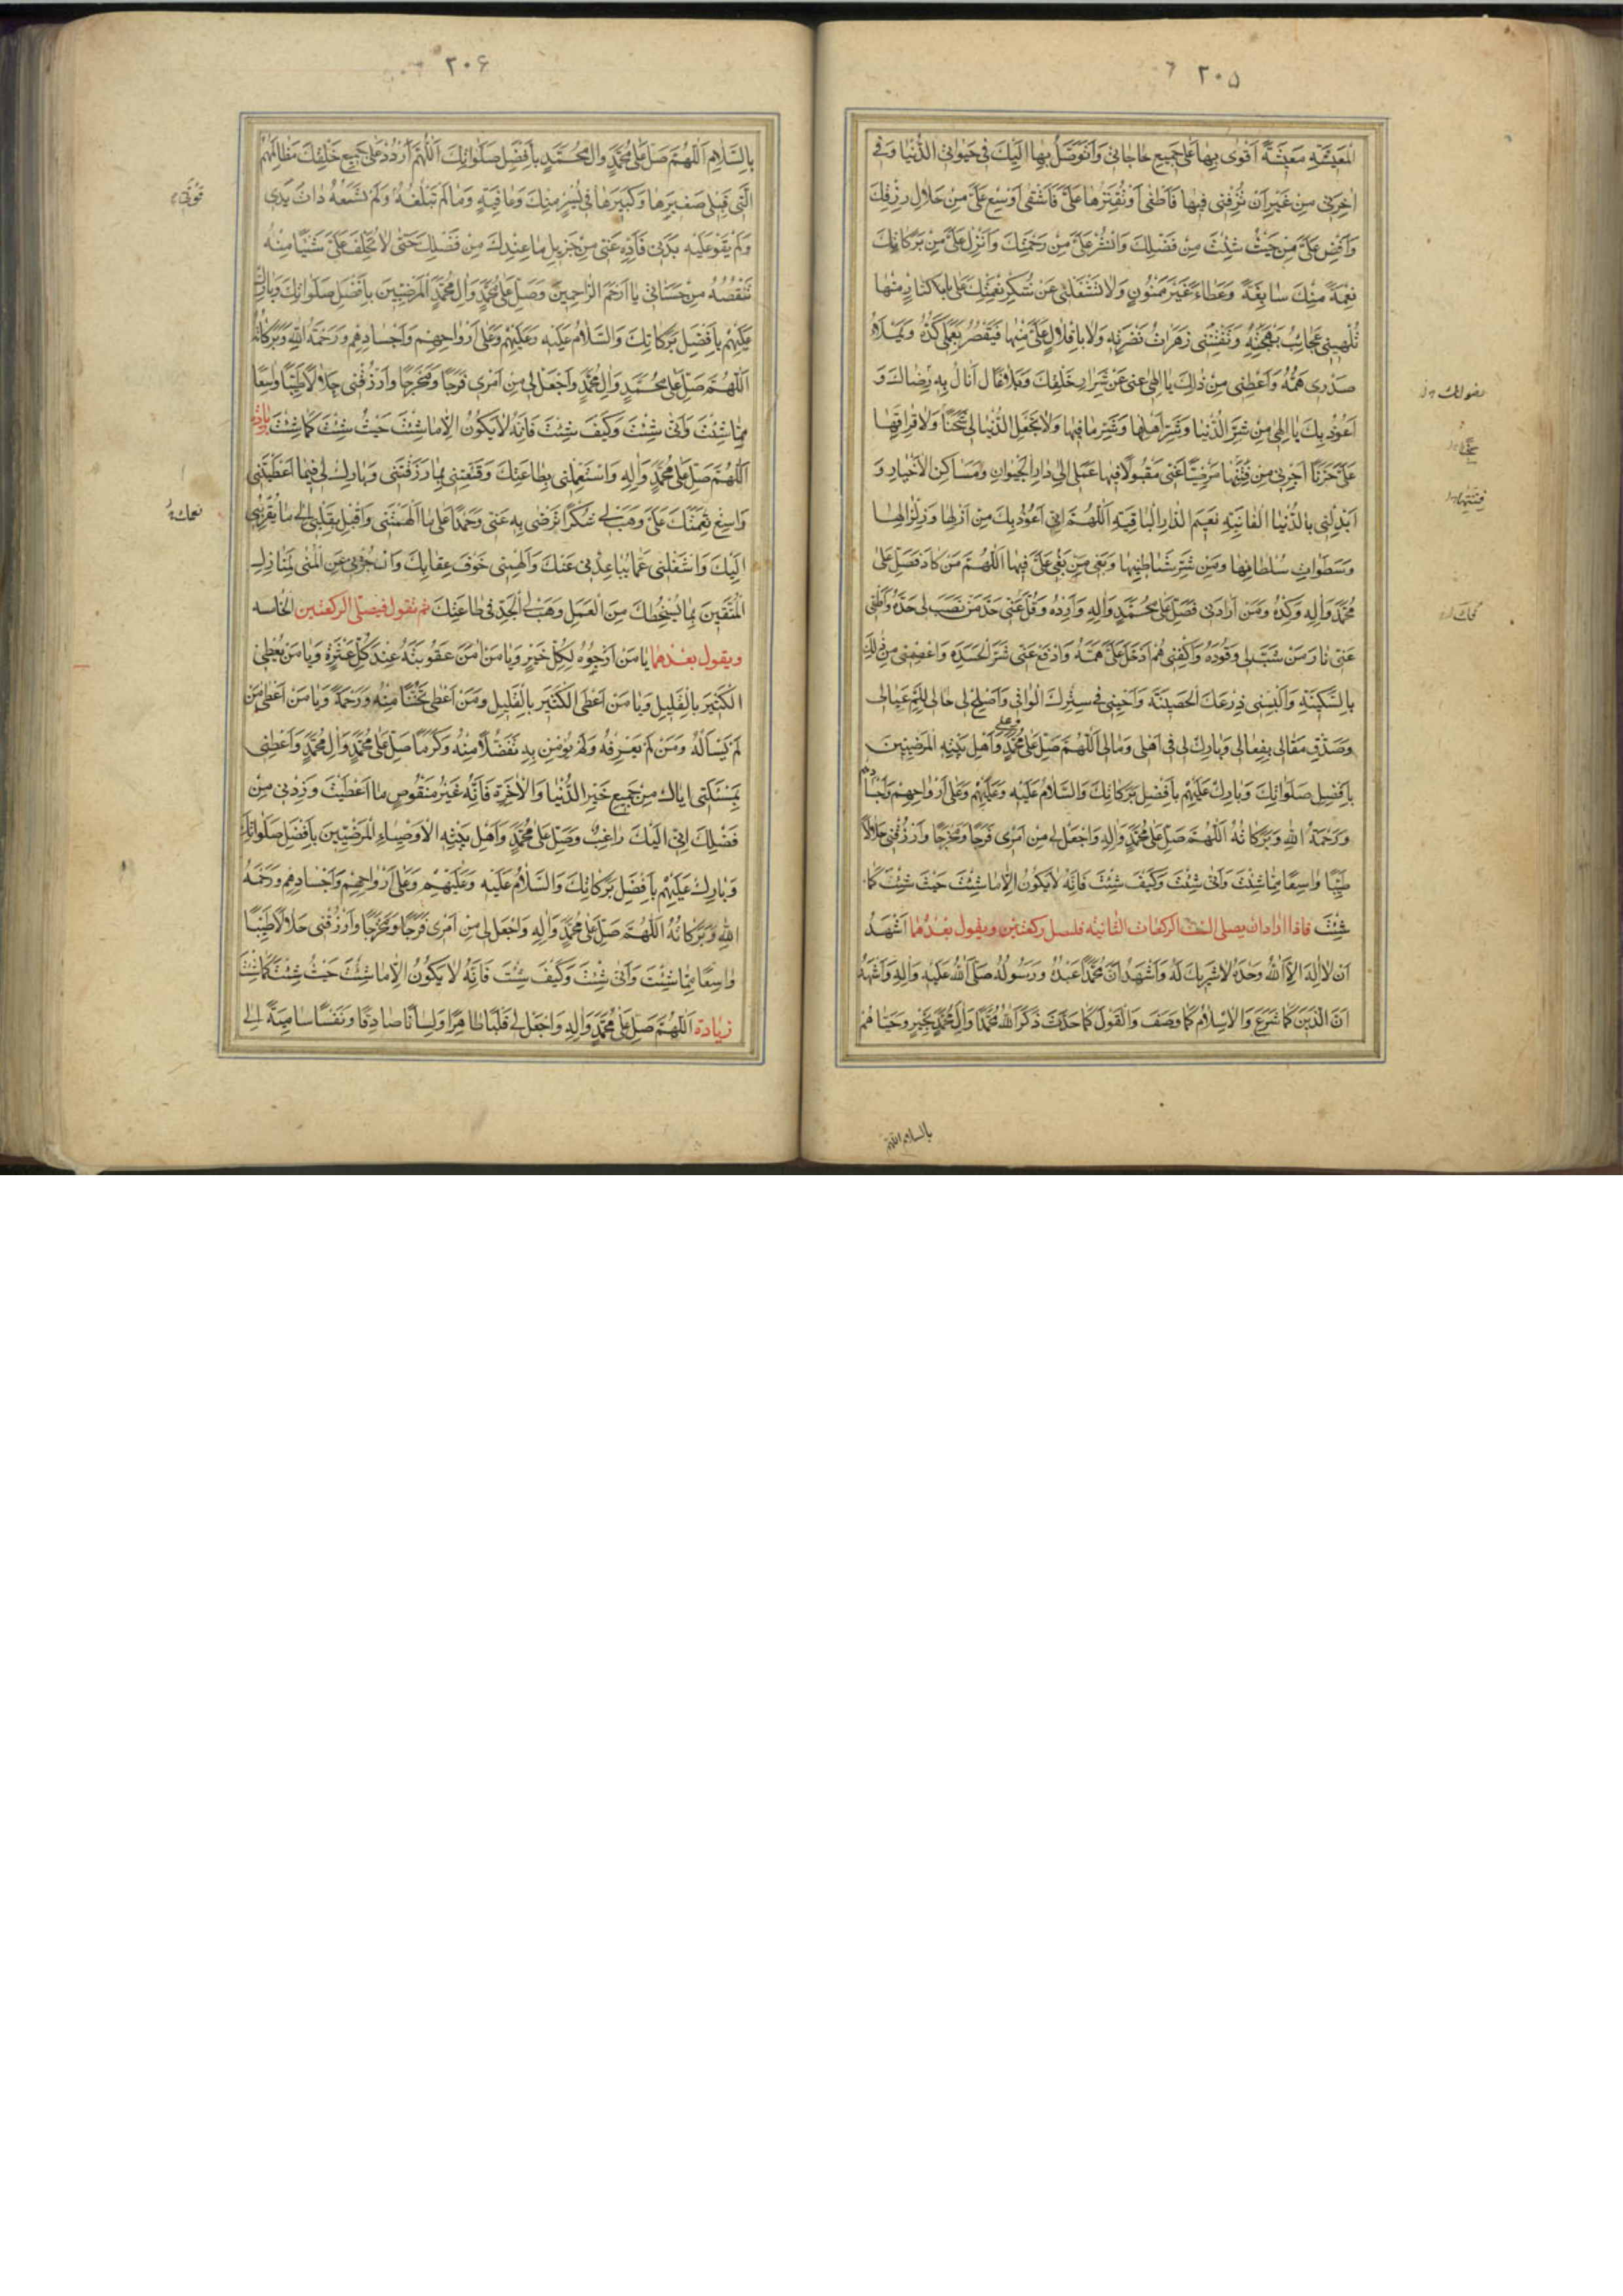 ٢٠٥
المَعيشَةِ مَعيشَةً اَقْوىٰ بِهاعَلىٰ جَميعِ حٰاجاتى وَاَتَوَصَّلُ بِهٰا اِلَيْكَ فى حَيٰوتى الدُّنْيٰا وَفى
اٰخِرَتى مِنْ غَيْرِاَنْ تُتْرِفَنى فيهٰا فَاَطْغىٰ اَوْتُقَتِّرَهٰا عَلَىَّ فَاَشْقىٰ اَوْسِعْ عَلَىَّ مِنْ حَلالِ رِزْقِكَ
وَاَفِضْ عَلَىَّ مِنْ حَيْثُ شِئْتَ مِنْ فَضْلِكَ وَانْشُرْعَلَىَّ مِنْ رَحْمَتِكَ وَاَنْزِلْ عَلَىَّ مِنْ بَرَكٰاتِكَ
نِعْمَةً مِنْكَ سٰابِغَةً وَعَطٰاءً غَيْرَمَمْنُونٍ وَلاٰتَشْغَلْنى عَنْ شُكْرِ نِعْمَتِكَ عَلَىَّ بِاِكْثٰارٍ مِنْهٰا
تُلْهينى عَجٰائِبُ بَهْجَتِهِ وَتَفْتِنُنى زَهَرٰاتُ نَضْرَتِهِ وَلاٰ بِاِقْلاٰلٍ عَلَىَّ مِنْهٰا فَيَقْصُرَ بِعَمَلى كَدُّهُ وَيَمْلَاُ
صَدْرى هَمُّهُ وَاَعْطِنى مِنْ ذٰلِكَ يٰا اِلٰهى غِنىً عَنْ شِرٰارِ خَلْقِكَ وَبَلاٰغًا اَنٰالُ بِهِ رِضٰاكَ وَ
اَعُوذُ بِكَ يٰا اِلٰهى مِنْ شَرِّ الدُّنْيٰا وَشَرِّ اَهْلِهٰا وَشَرِّ مٰافيهٰا وَلاٰتَجْعَلِ الدُّنْيٰا لى سِجْنًا وَلاٰفِرٰاقَهٰا
عَلَىَّ حُزْنًا اَجِرْنى مِنْ فِتَنِهٰا مَرْضِيًّا عَنّى مَقْبُولاً فيهٰا عَمَلى اِلىٰ دٰارِ الْحَيَوٰانِ وَمَسٰاكِنِ الْاَخْيٰارِ وَ
اَبْدِلْنى بِالدُّنْيَا الْفٰانِيَةِ نَعيمَ الدّٰارِ الْبٰاقِيَةِ اَللّٰهُمَّ اِنّى اَعُوذُ بِكَ مِنْ اَزْلِهٰا وَزِلْزٰالِهٰا
وَسَطَوٰاتِ سُلْطٰانِهٰا وَمِنْ شَرِّ شَيٰاطينِهٰا وَبَغْىِ مَنْ بَغىٰ عَلَىَّ فيهٰا اَللّٰهُمَّ مَنْ كٰادَنى فَصَلِّ عَلىٰ
مُحَمَّدٍ وَاٰلِهِ وَكِدْهُ وَمَنْ اَرٰادَنى فَصَلِّ عَلىٰ مُحَمَّدٍ وَاٰلِهِ وَاَرِدْهُ وَفُلَّ عَنّى حَدَّ مَنْ نَصَبَ لى حَدَّهُ وَاَطْفِ
عَنّى نٰارَ مَنْ شَبَّ لى وَقُودَهُ وَاكْفِنى هَمَّ مَنْ اَدْخَلَ عَلَىَّ هَمَّهُ وَادْفَعْ عَنّى شَرَّ الْحَسَدَةِ وَاعْصِمْنى مِنْ ذٰلِكَ
بِالسَّكينَةِ وَاَلْبِسْنى دِرْعَكَ الْحَصينَةَ وَاَحْيِنى فى سِتْرِكَ الْوٰاقى وَاَصْلِحْ لى حٰالى لِلَمِّ عِيٰالى
وَصَدِّقْ مَقٰالى بِفِعٰالى وَبٰارِكْ لى فى اَهْلى وَمٰالى اَللّٰهُمَّ صَلِّ عَلىٰ مُحَمَّدٍ وَاَهْلِ بَيْتِهِ الْمَرْضِيّينَ
بِاَفْضَلِ صَلَوٰاتِكَ وَبٰارِكْ عَلَيْهِمْ بِاَفْضَلِ بَرَكٰاتِكَ وَالسَّلاٰمُ عَلَيْهِ وَعَلَيْهِمْ وَعَلىٰ اَرْوٰاحِهِمْ وَاَجْسٰادِهِمْ
وَرَحْمَةُ اللهِ وَبَرَكٰاتُهُ اَللّٰهُمَّ صَلِّ عَلىٰ مُحَمَّدٍ وَاٰلِهِ وَاجْعَلْ لى مِنْ اَمْرى فَرَجًا وَمَخْرَجًا وَارْزُقْنى حَلاٰلاً
طَيِّبًا وٰاسِعًا مِمّٰا شِئْتَ وَاَنّىٰ شِئْتَ وَكَيْفَ شِئْتَ فَاِنَّهُ لاٰيَكُونُ اِلاّٰ مٰا شِئْتَ حَيْثُ شِئْتَ كَمٰا
شِئْتَ فاذا اراد ان يصلى الست الركعات الثانيه فليصل ركعتين ويقول بعدهما اَشْهَدُ
اَنْ لاٰ اِلٰهَ اِلاَّ اللهُ وَحْدَهُ لاٰشَريكَ لَهُ وَاَشْهَدُ اَنَّ مُحَمَّدًا عَبْدُهُ وَرَسُولُهُ صَلَّى اللهُ عَلَيْهِ وَاٰلِهِ وَاَشْهَدُ
اَنَّ الدّينَ كَمٰا شَرَعَ وَالْاِسْلاٰمَ كَمٰا وَصَفَ وَالْقَوْلَ كَمٰا حَدَّثَ ذَكَرَ اللهُ مُحَمَّدًا وَاٰلَ مُحَمَّدٍ بِخَيْرٍ وَحَيّٰاهُمْ
بالسلام اللهم
٢٠۶
بِالسَّلاٰمِ اَللّٰهُمَّ صَلِّ عَلىٰ مُحَمَّدٍ وَاٰلِ مُحَمَّدٍ بِاَفْضَلِ صَلَوٰاتِكَ اَللّٰهُمَّ ارْدُدْ عَلىٰ جَميعِ خَلْقِكَ مَظٰالِمَهُمْ
الَّتى قِبَلى صَغيرَهٰا وَكَبيرَهٰا فى يُسْرٍ مِنْكَ وَعٰافِيَةٍ وَمٰا لَمْ تَبْلُغْهُ وَلَمْ تَسَعْهُ ذٰاتُ يَدى
وَلَمْ يَقْوَ عَلَيْهِ بَدَنى فَاَدِّهِ عَنّى مِنْ جَزيلِ مٰا عِنْدَكَ مِنْ فَضْلِكَ حَتّىٰ لاٰتُخْلِفَ عَلَىَّ شَيْئًا مِنْهُ
تَنْقُصُهُ مِنْ حَسَنٰاتى يٰا اَرْحَمَ الرّٰاحِمينَ وَصَلِّ عَلىٰ مُحَمَّدٍ وَاٰلِ مُحَمَّدٍ الْمَرْضِيّينَ بِاَفْضَلِ صَلَوٰاتِكَ وَبٰارِكْ
عَلَيْهِمْ بِاَفْضَلِ بَرَكٰاتِكَ وَالسَّلاٰمُ عَلَيْهِ وَعَلَيْهِمْ وَعَلىٰ اَرْوٰاحِهِمْ وَاَجْسٰادِهِمْ وَرَحْمَةُ اللهِ وَبَرَكٰاتُهُ
اَللّٰهُمَّ صَلِّ عَلىٰ مُحَمَّدٍ وَاٰلِ مُحَمَّدٍ وَاجْعَلْ لى مِنْ اَمْرى فَرَجًا وَمَخْرَجًا وَارْزُقْنى حَلاٰلاً طَيِّبًا وٰاسِعًا
مِمّٰا شِئْتَ وَاَنّىٰ شِئْتَ وَكَيْفَ شِئْتَ فَاِنَّهُ لاٰيَكُونُ اِلاّٰ مٰا شِئْتَ حَيْثُ شِئْتَ كَمٰا شِئْتَ زيادة
اَللّٰهُمَّ صَلِّ عَلىٰ مُحَمَّدٍ وَاٰلِهِ وَاسْتَعْمِلْنى بِطٰاعَتِكَ وَقَنِّعْنى بِمٰا رَزَقْتَنى وَبٰارِكْ لى فيمٰا اَعْطَيْتَنى
وَاسْبِغْ نِعَمَكَ عَلَىَّ وَهَبْ لى شُكْرًا تَرْضىٰ بِهِ عَنّى وَحَمْدًا عَلىٰ مٰا اَلْهَمْتَنى وَاَقْبِلْ بِقَلْبى اِلىٰ مٰا يُقَرِّبُنى
اِلَيْكَ وَاشْغَلْنى عَمّٰا يُبٰاعِدُنى عَنْكَ وَاَلْهِمْنى خَوْفَ عِقٰابِكَ وَازْجُرْنى عَنِ الْمُنىٰ لِمَنٰازِلِ
الْمُتَّقينَ بِمٰا يُسْخِطُكَ مِنَ الْعَمَلِ وَهَبْ لِىَ الْجِدَّ فى طٰاعَتِكَ ثم تقوم فيصلى الركعتين الخامسه
ويقول بعدهما يٰا مَنْ اَرْجُوهُ لِكُلِّ خَيْرٍ وَيٰا مَنْ اٰمَنُ عُقُوبَتَهُ عِنْدَ كُلِّ عَثْرَةٍ وَيٰا مَنْ يُعْطِى
الْكَثيرَ بِالْقَليلِ وَيٰا مَنْ اَعْطَى الْكَثيرَ بِالْقَليلِ وَمَنْ اَعْطىٰ تَحَنُّنًا مِنْهُ وَرَحْمَةً وَيٰا مَنْ اَعْطىٰ مَنْ
لَمْ يَسْأَلْهُ وَمَنْ لَمْ يَعْرِفْهُ وَلَمْ يُؤْمِنْ بِهِ تَفَضُّلاً مِنْهُ وَكَرَمًا صَلِّ عَلىٰ مُحَمَّدٍ وَاٰلِ مُحَمَّدٍ وَاَعْطِنى
بِمَسْئَلَتى اِيّٰاكَ مِنْ جَميعِ خَيْرِ الدُّنْيٰا وَالْاٰخِرَةِ فَاِنَّهُ غَيْرُ مَنْقُوصٍ مٰا اَعْطَيْتَ وَزِدْنى مِنْ
فَضْلِكَ اِنّى اِلَيْكَ رٰاغِبٌ وَصَلِّ عَلىٰ مُحَمَّدٍ وَاَهْلِ بَيْتِهِ الْاَوْصِيٰاءِ الْمَرْضِيّينَ بِاَفْضَلِ صَلَوٰاتِكَ
وَبٰارِكْ عَلَيْهِمْ بِاَفْضَلِ بَرَكٰاتِكَ وَالسَّلاٰمُ عَلَيْهِ وَعَلَيْهِمْ وَعَلىٰ اَرْوٰاحِهِمْ وَاَجْسٰادِهِمْ وَرَحْمَةُ
اللهِ وَبَرَكٰاتُهُ اَللّٰهُمَّ صَلِّ عَلىٰ مُحَمَّدٍ وَاٰلِهِ وَاجْعَلْ لى مِنْ اَمْرى فَرَجًا وَمَخْرَجًا وَارْزُقْنى حَلاٰلاً طَيِّبًا
وٰاسِعًا مِمّٰا شِئْتَ وَاَنّىٰ شِئْتَ وَكَيْفَ شِئْتَ فَاِنَّهُ لاٰ يَكُونُ اِلاّٰ مٰا شِئْتَ حَيْثُ شِئْتَ كَمٰا شِئْتَ
زيادة اَللّٰهُمَّ صَلِّ عَلىٰ مُحَمَّدٍ وَاٰلِهِ وَاجْعَلْ لى قَلْبًا طٰاهِرًا وَلِسٰانًا صٰادِقًا وَنَفْسًا سٰامِيَةً اِلىٰ